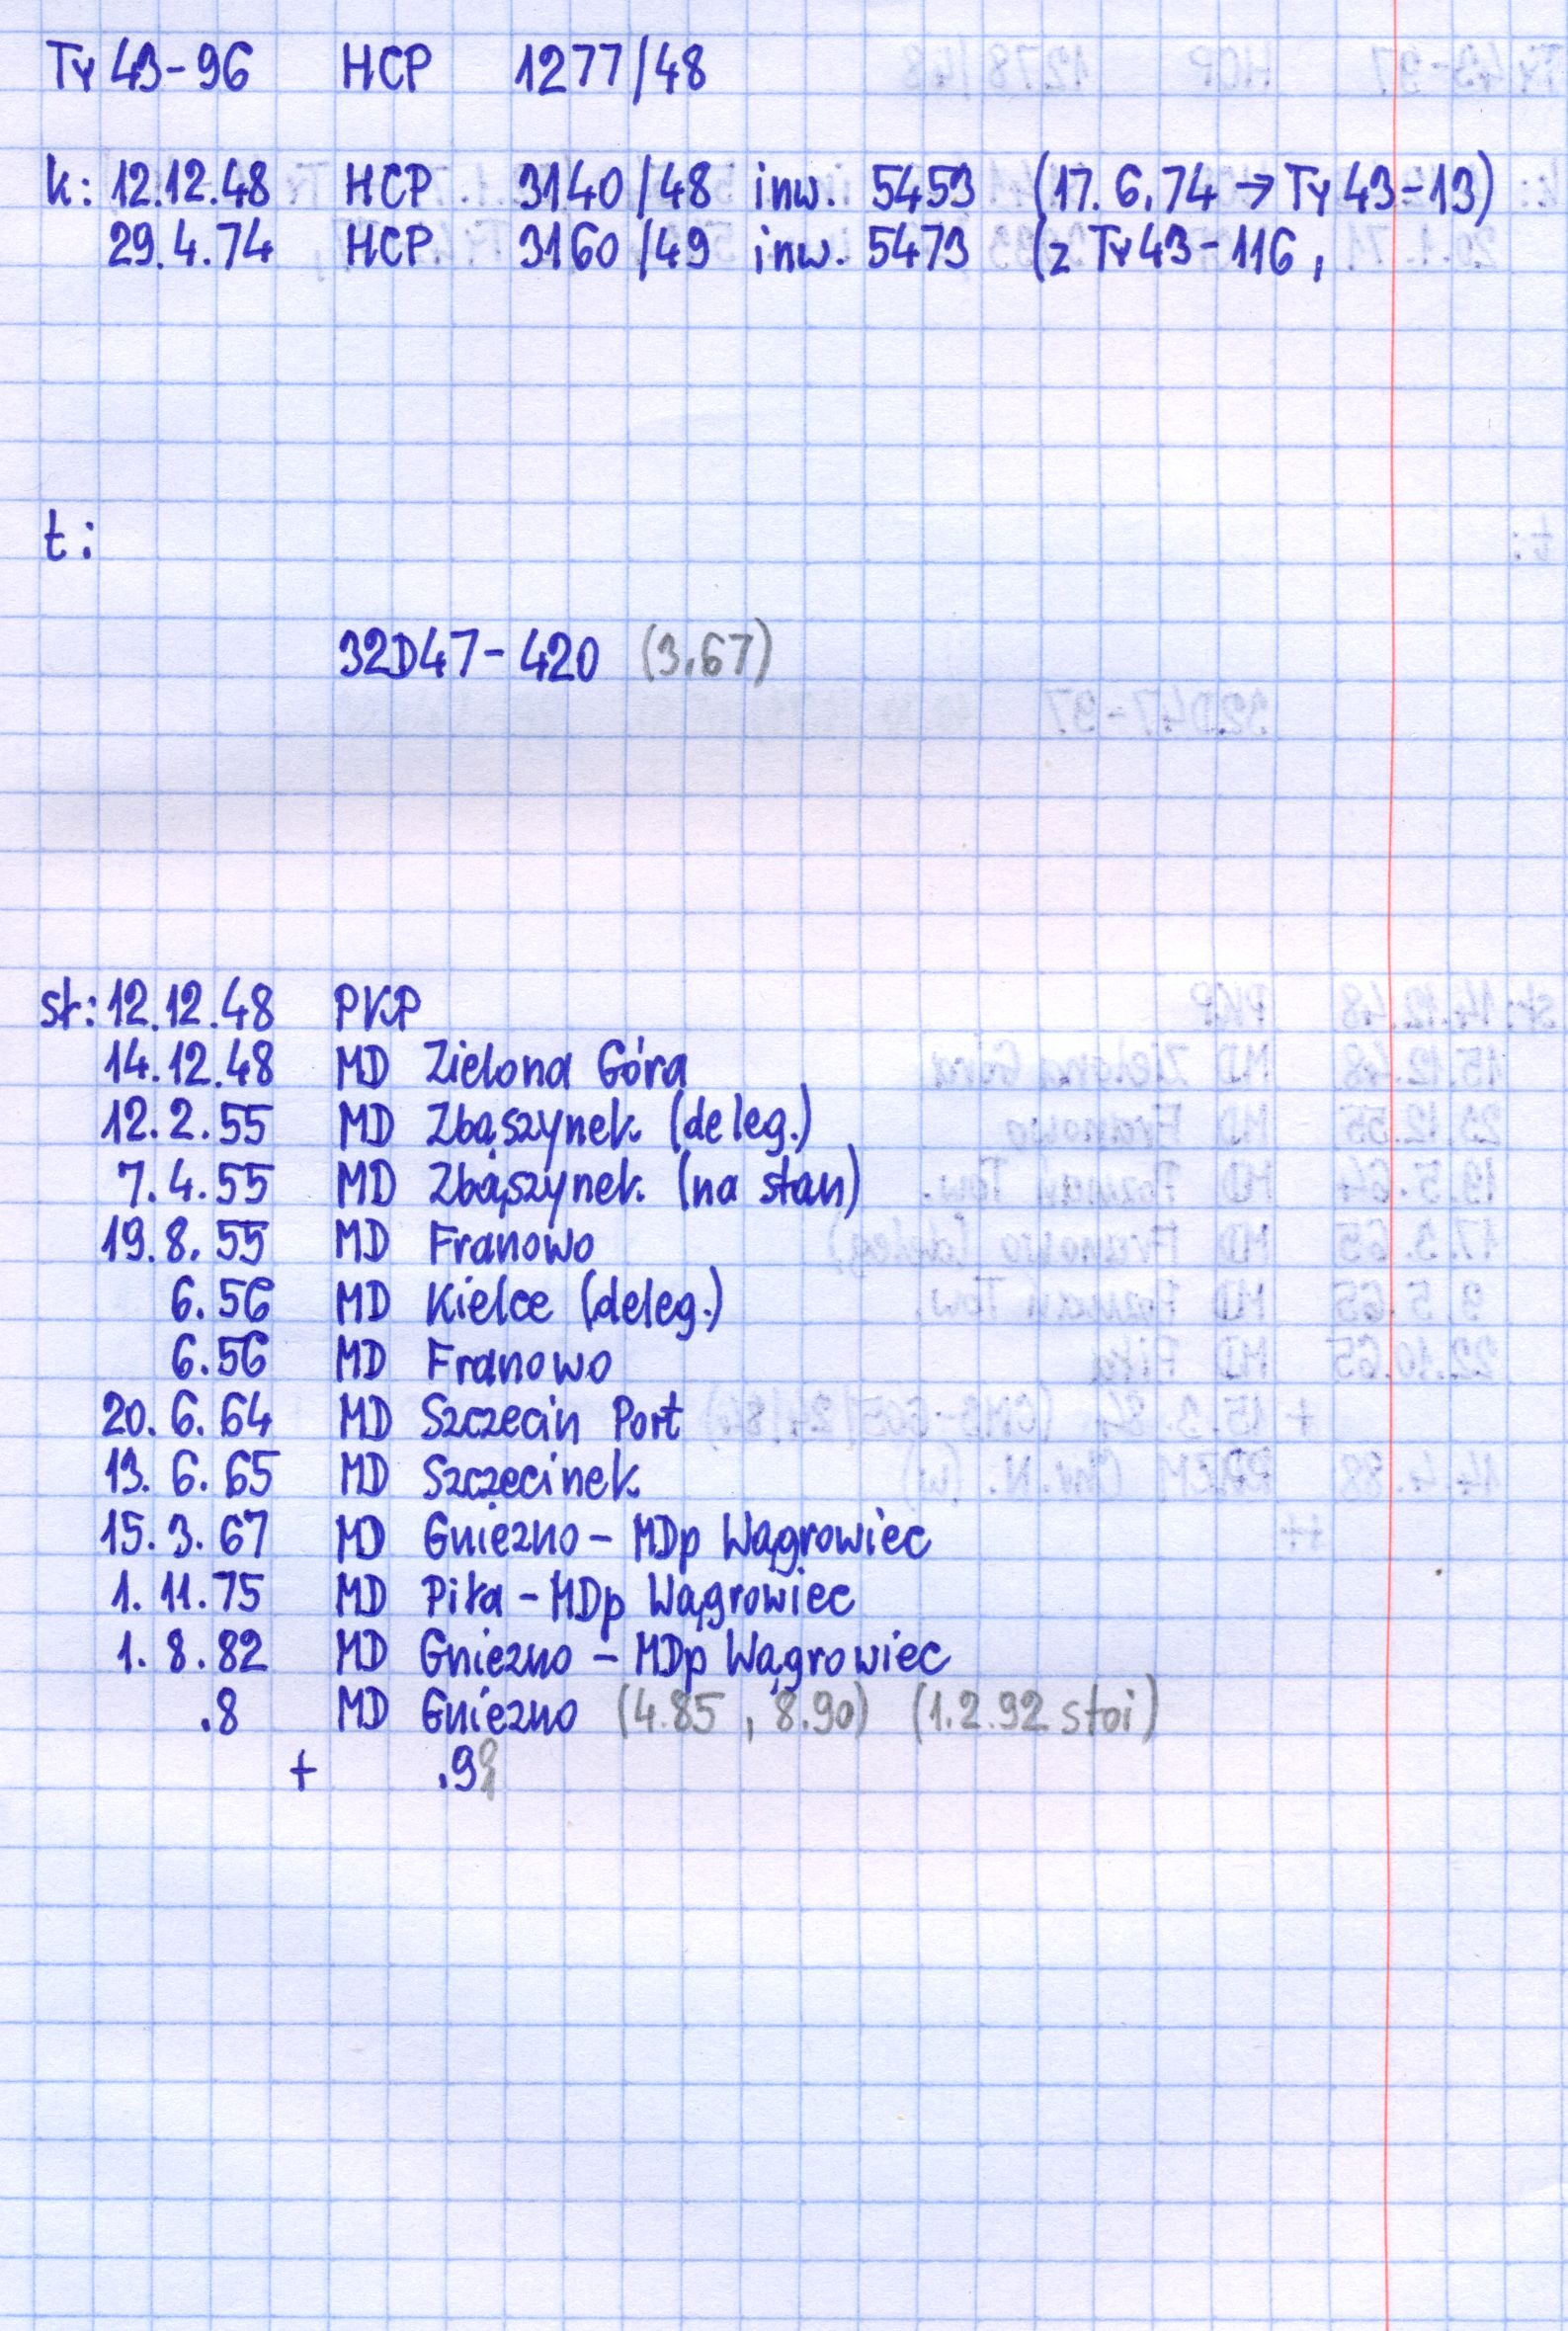 Ty 43-96 HCP 1277/48
k: 12.12.48 HCP 3140/48 inw. 5453 (17.6.74 → Ty 43-13)
29.4.74 HCP 3160/49 inw. 5473 (z Ty 43-116,
t:
32D47-420 (3.67)
st: 12.12.48 PKP
14.12.48 MD Zielona Góra
12.2.55 MD Zbąszynek (deleg.)
7.4.55 MD Zbąszynek (na stan)
19.8.55 MD Franowo
6.56 MD Kielce (deleg.)
6.56 MD Franowo
20.6.64 MD Szczecin Port
13.6.65 MD Szczecinek
15.3.67 MD Gniezno - MDp Wągrowiec
1.11.75 MD Piła - MDp Wągrowiec
1.8.82 MD Gniezno - MDp Wągrowiec
.8 MD Gniezno (4.85, 8.90) (1.2.92 stoi)
+ .9